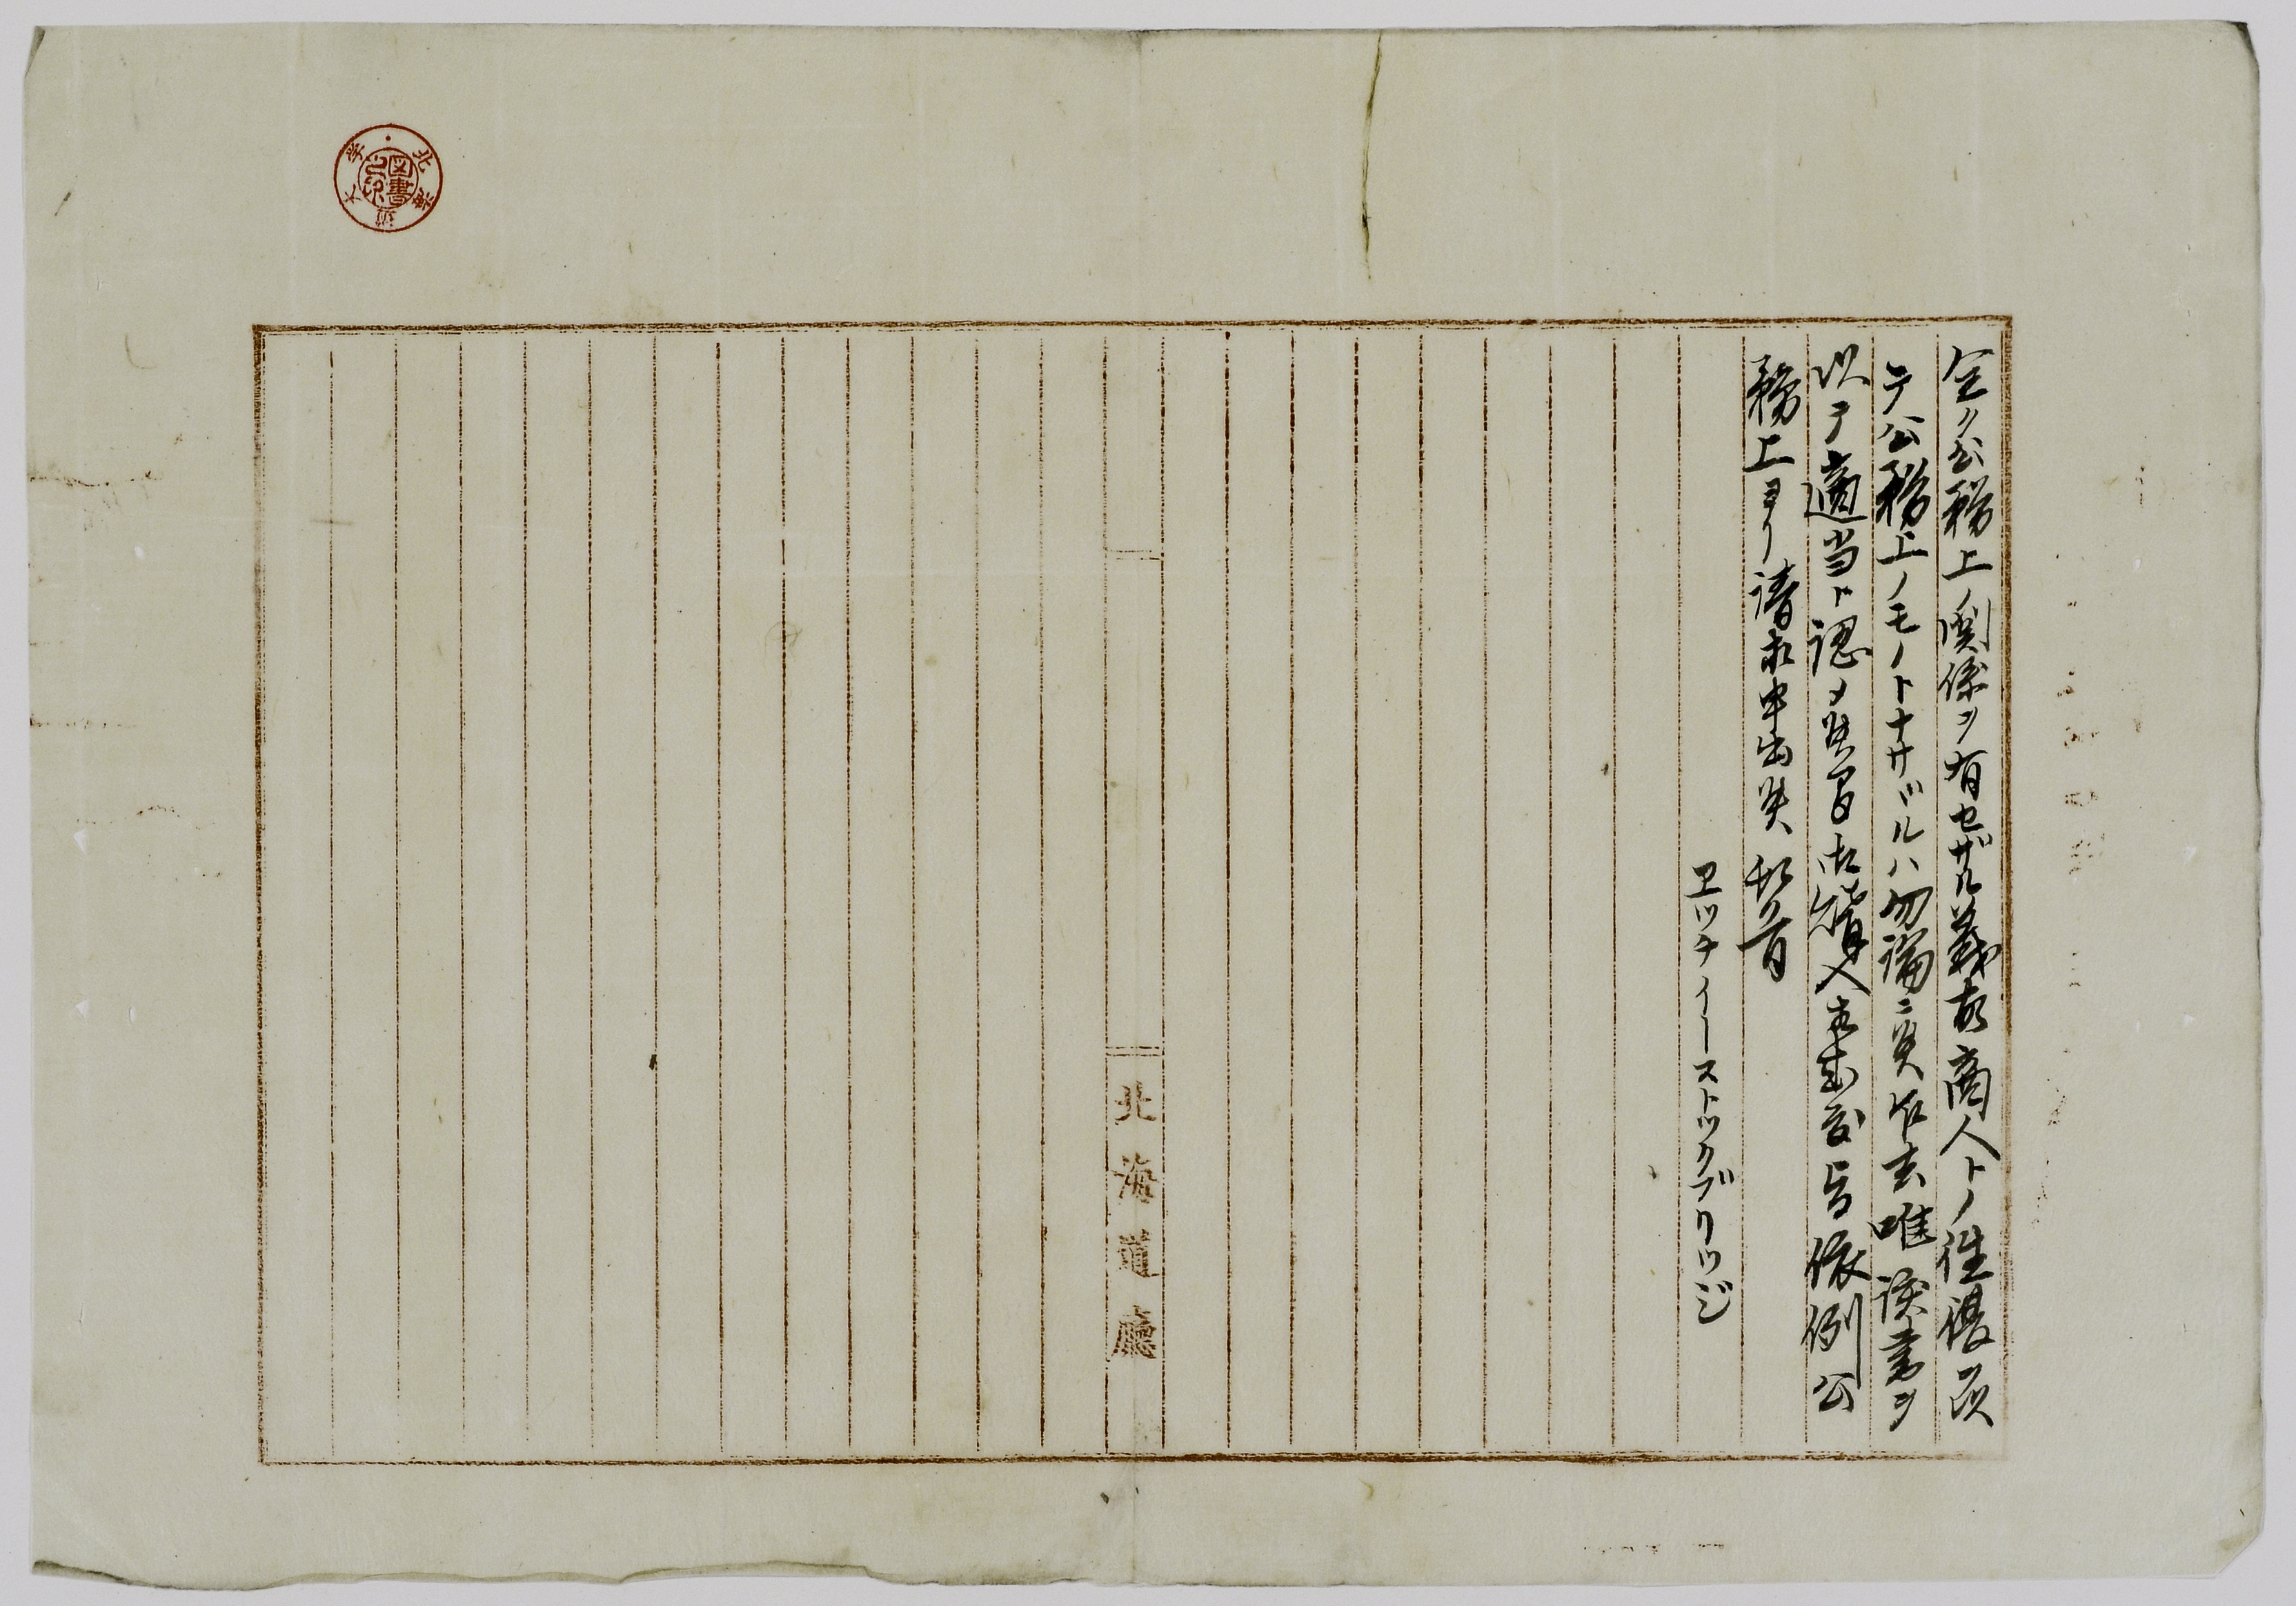 全ク公務上ノ関係ヲ有セザル義故商人トノ往復決
テ公務上ノモノトナサヾルハ勿論ニ候乍去唯談書ヲ
以テ適当ト認メ候間御購入相成度旨依例公
務上ヨリ請求申出候 敬首
ヱツチイーストックブリツジ
北海道廳
北海道大学
図書之印